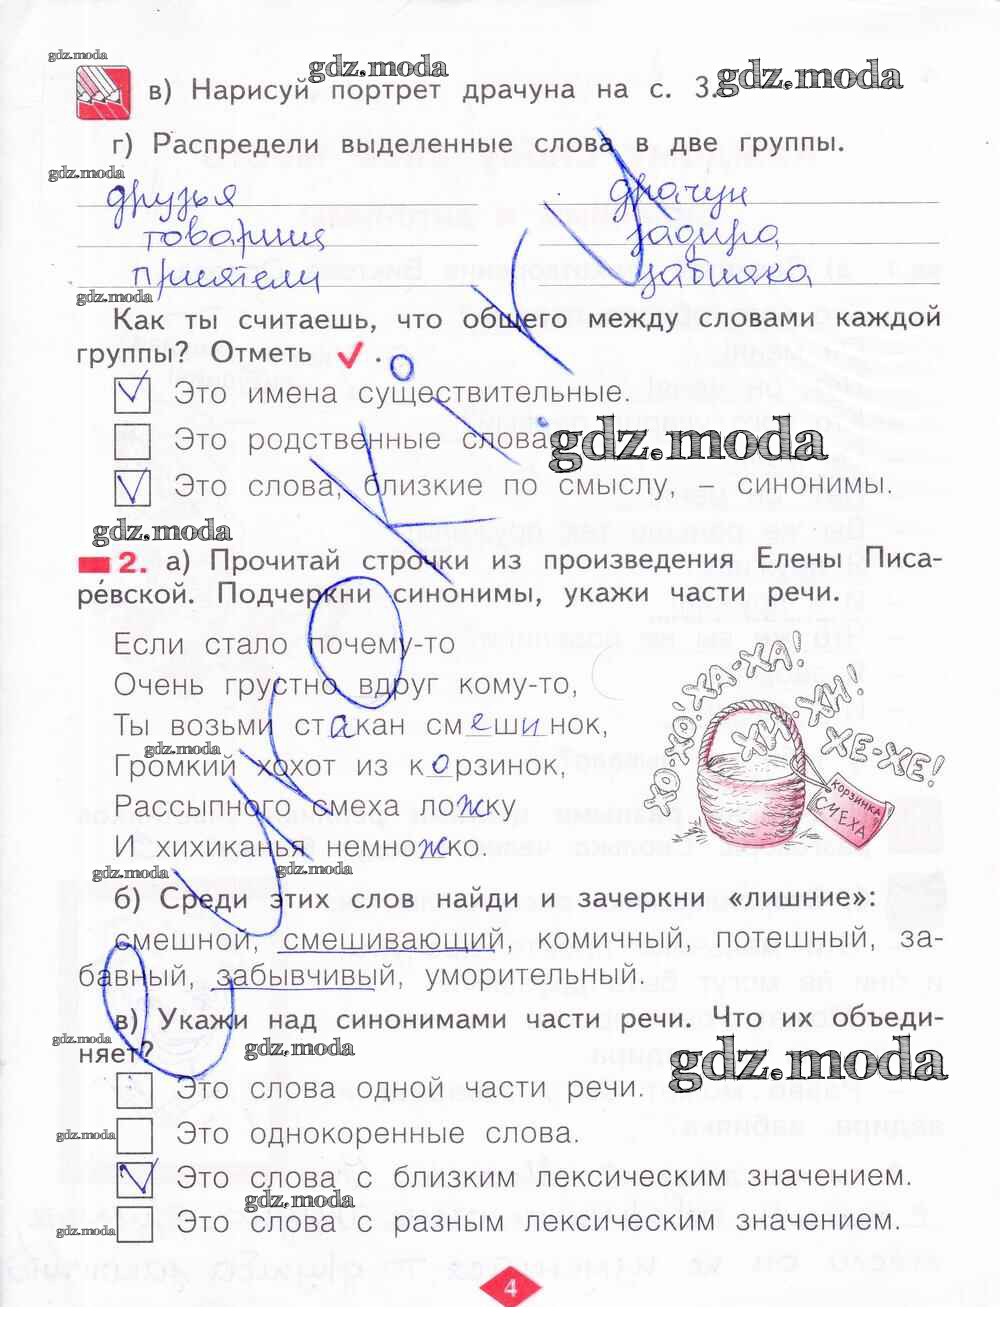 gdz.moda
gdz.moda
gdz.moda
в) Нарисуй портрет драчуна на с. 3.
г) Распредели выделенные слова в две группы.
gdz.moda
друзья драчун
товарищ задира
приятели забияка
gdz.moda
Как ты считаешь, что общего между словами каждой
группы? Отметь ✓.
Это имена существительные.
Это родственные слова.
gdz.moda
Это слова, близкие по смыслу, – синонимы.
gdz.moda
2. а) Прочитай строчки из произведения Елены Писа-
ре́вской. Подчеркни синонимы, укажи части речи.
Если стало почему-то
Очень грустно вдруг кому-то,
Ты возьми стакан смешинок,
gdz.moda
Громкий хохот из корзинок,
Рассыпного смеха ложку
И хихиканья немножко.
ХО-ХО! ХА-ХА-ХА!
ХИ-ХИ-ХИ!
ХЕ-ХЕ-ХЕ!
КОРЗИНКА
СМЕХА
gdz.moda
gdz.moda
б) Среди этих слов найди и зачеркни «лишние»:
смешной, смешивающий, комичный, потешный, за-
бавный, забывчивый, уморительный.
в) Укажи над синонимами части речи. Что их объеди-
няет?
gdz.moda
gdz.moda
gdz.moda
Это слова одной части речи.
gdz.moda
Это однокоренные слова.
Это слова с близким лексическим значением.
gdz.moda
gdz.moda
Это слова с разным лексическим значением.
4